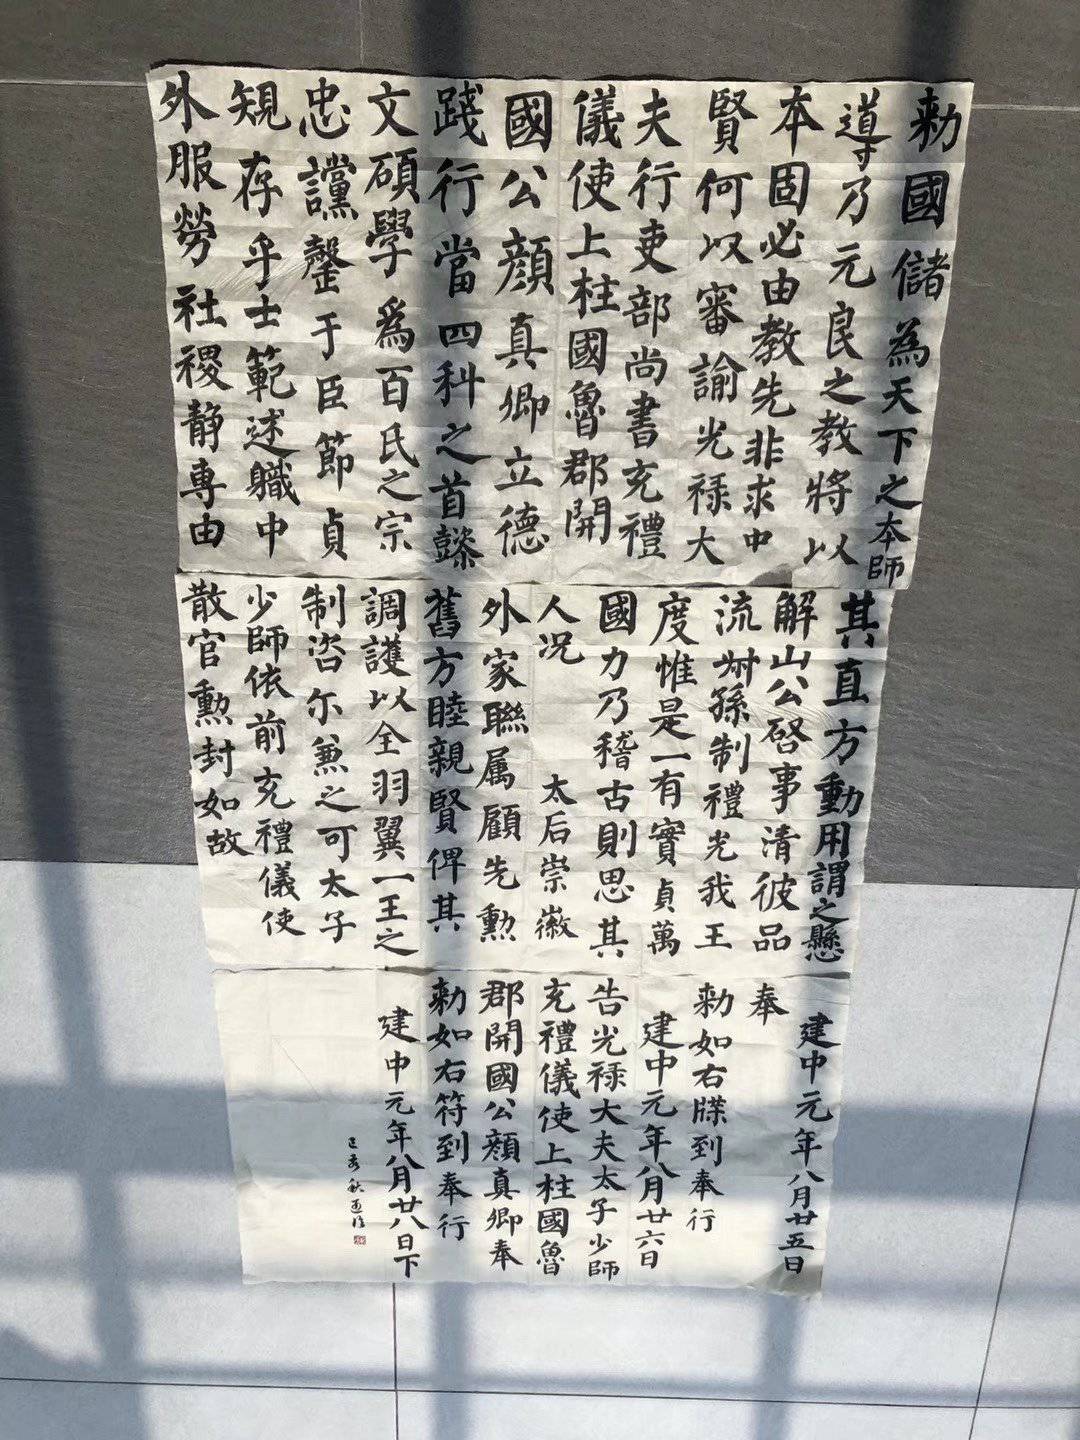 勑國儲為天下之本師
導乃元良之教將以
本固必由教先非求中
賢何以審諭光祿大
夫行吏部尚書充禮
儀使上柱國魯郡開
國公顏真卿立德
踐行當四科之首懿
文碩學為百氏之宗
忠讜罄于臣節貞
規存乎士範述職中
外服勞社稷靜專由
其直方動用謂之懸
解山公啓事清彼品
流叔孫制禮光我王
度惟是一有實貞萬
國力乃稽古則思其
人況 太后崇徽
外家聯属顧先勲
舊方睦親賢俾其
調護以全羽翼一王之
制咨尔兼之可太子
少師依前充禮儀使
散官勲封如故
建中元年八月廿五日
奉
勑如右牒到奉行
建中元年八月廿六日
告光祿大夫太子少師
充禮儀使上柱國魯
郡開國公顏真卿奉
勑如右符到奉行
建中元年八月廿八日下